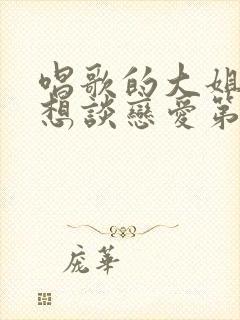 唱歌的大姐
想談戀愛第
庞華